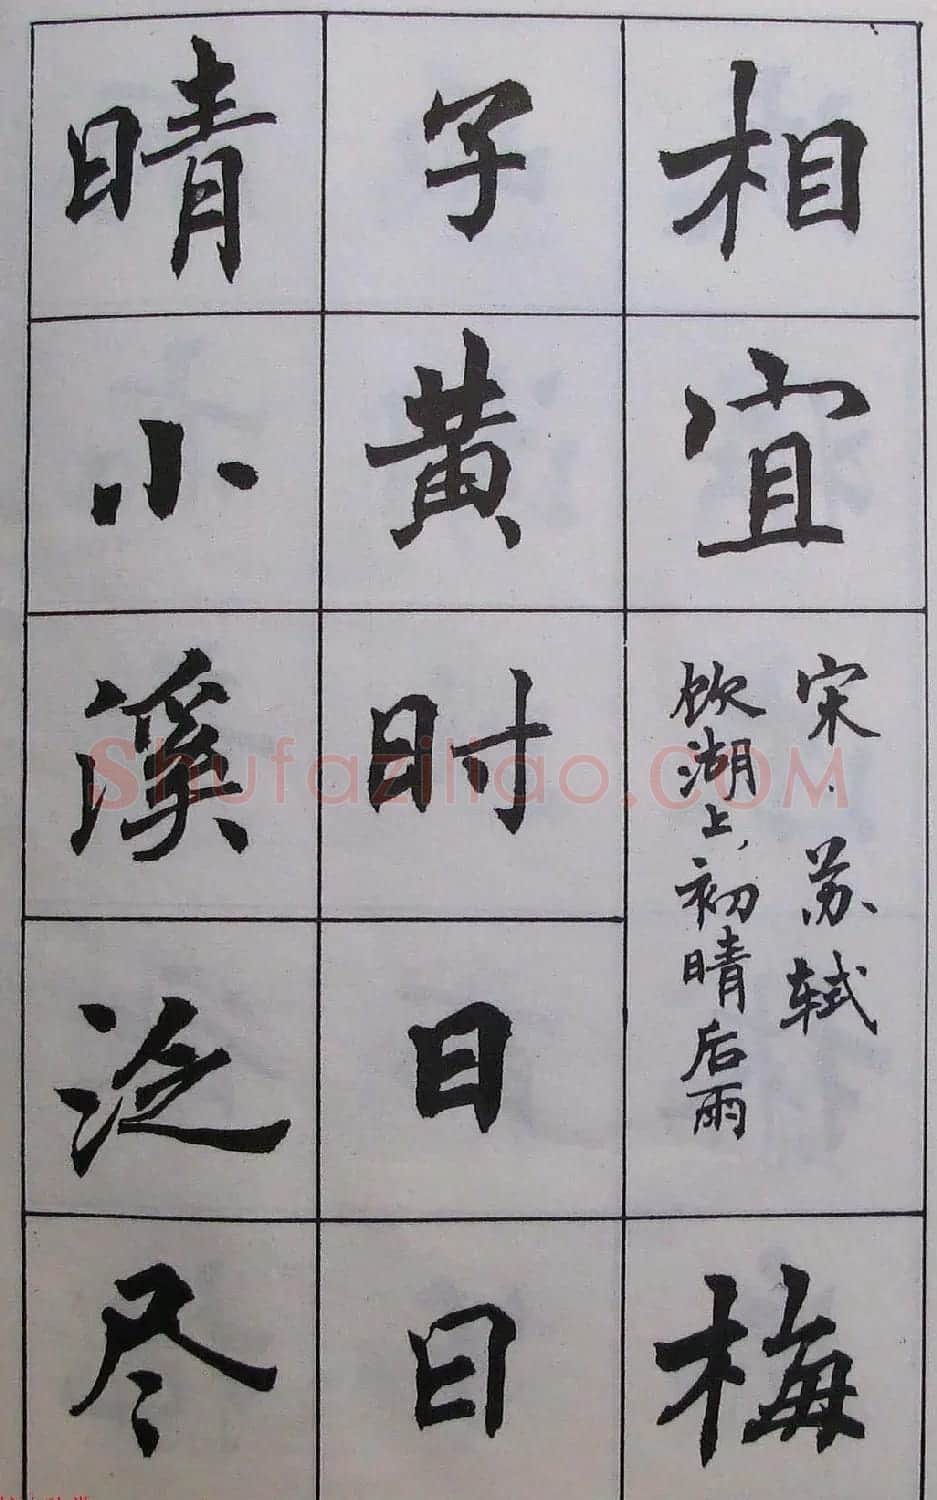 相宜
宋·苏轼
饮湖上,初晴后雨
梅
子黄时日日
晴小溪泛尽
Shufaziliao.COM